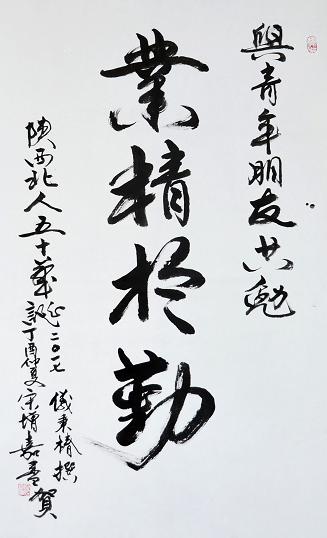 與青年朋友共勉
業精於勤
陝西北人五十華誕二〇一七
儀秉椿撰
丁酉仲夏宋增嘉書賀